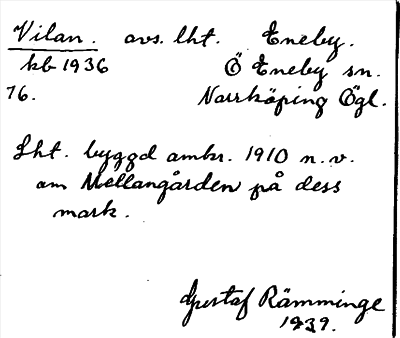 Vilan. avs. lht. Eneby.
kb 1936 Ö Eneby sn.
76. Norrköping Ögl.
Lht. byggd omkr. 1910 n.v.
om Mellangården på dess
mark.
Gustaf Rämminge
1939.